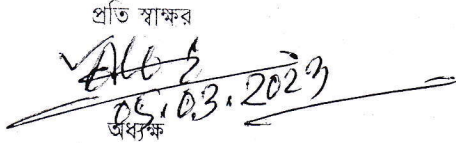 প্রতি স্বাক্ষর
05.03.2023
অধ্যক্ষ